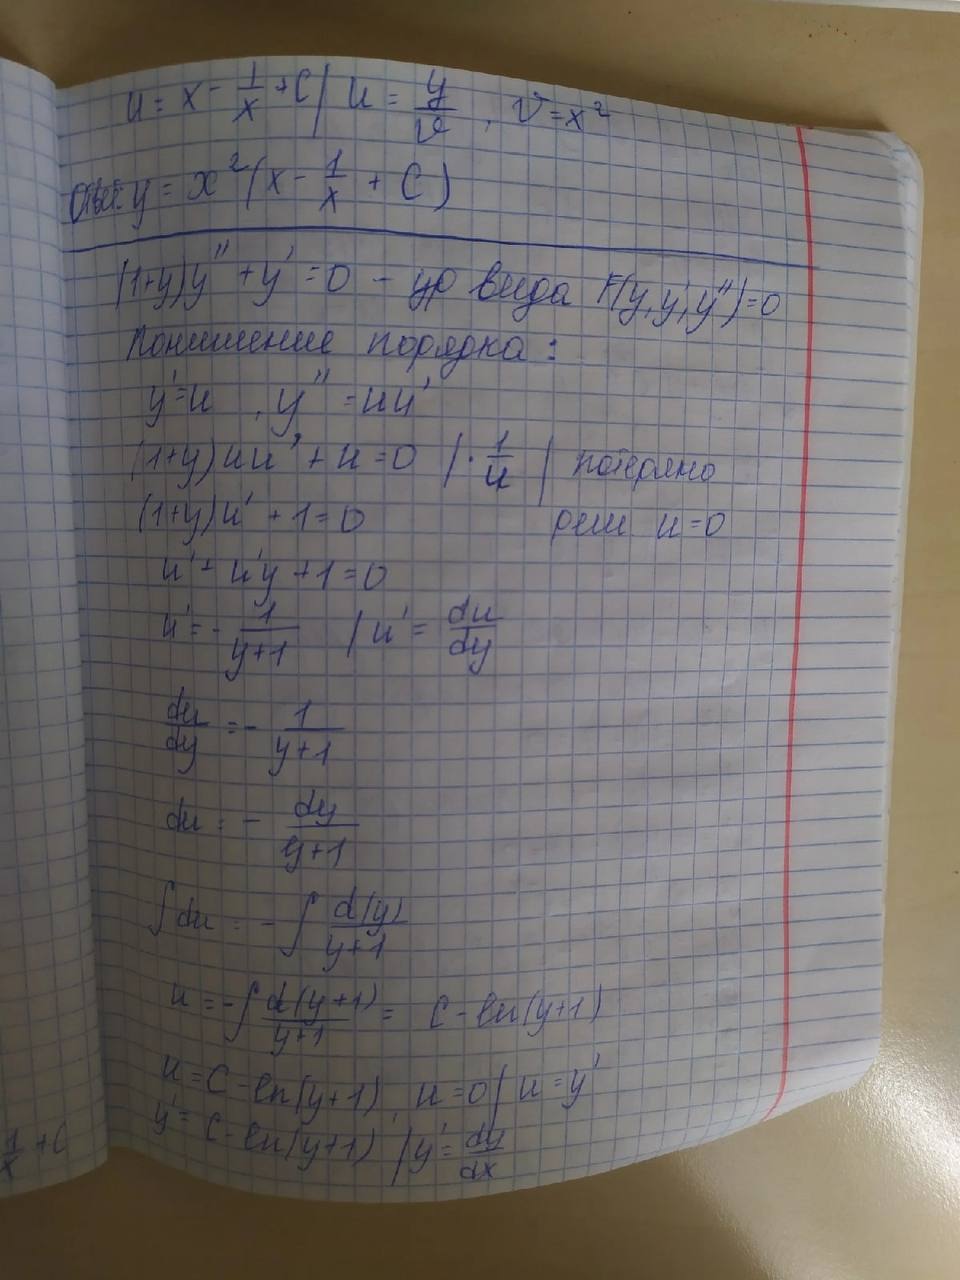 u = x - 1/x + C | u = y/v, v = x²
Ответ: y = x²(x - 1/x + C)
(1+y)y'' + y' = 0 - ур вида F(y, y', y'') = 0
Понижение порядка:
y' = u, y'' = uu'
(1+y)uu' + u = 0 | · 1/u | потеряно
(1+y)u' + 1 = 0 реш. u = 0
u' + u'y + 1 = 0
u' = - 1/(y+1) | u' = du/dy
du/dy = - 1/(y+1)
du = - dy/(y+1)
∫du = - ∫ d(y)/(y+1)
u = -∫ d(y+1)/(y+1) = C - ln(y+1)
u = C - ln(y+1), u = 0 | u = y'
y' = C - ln(y+1) | y' = dy/dx
1/x + C